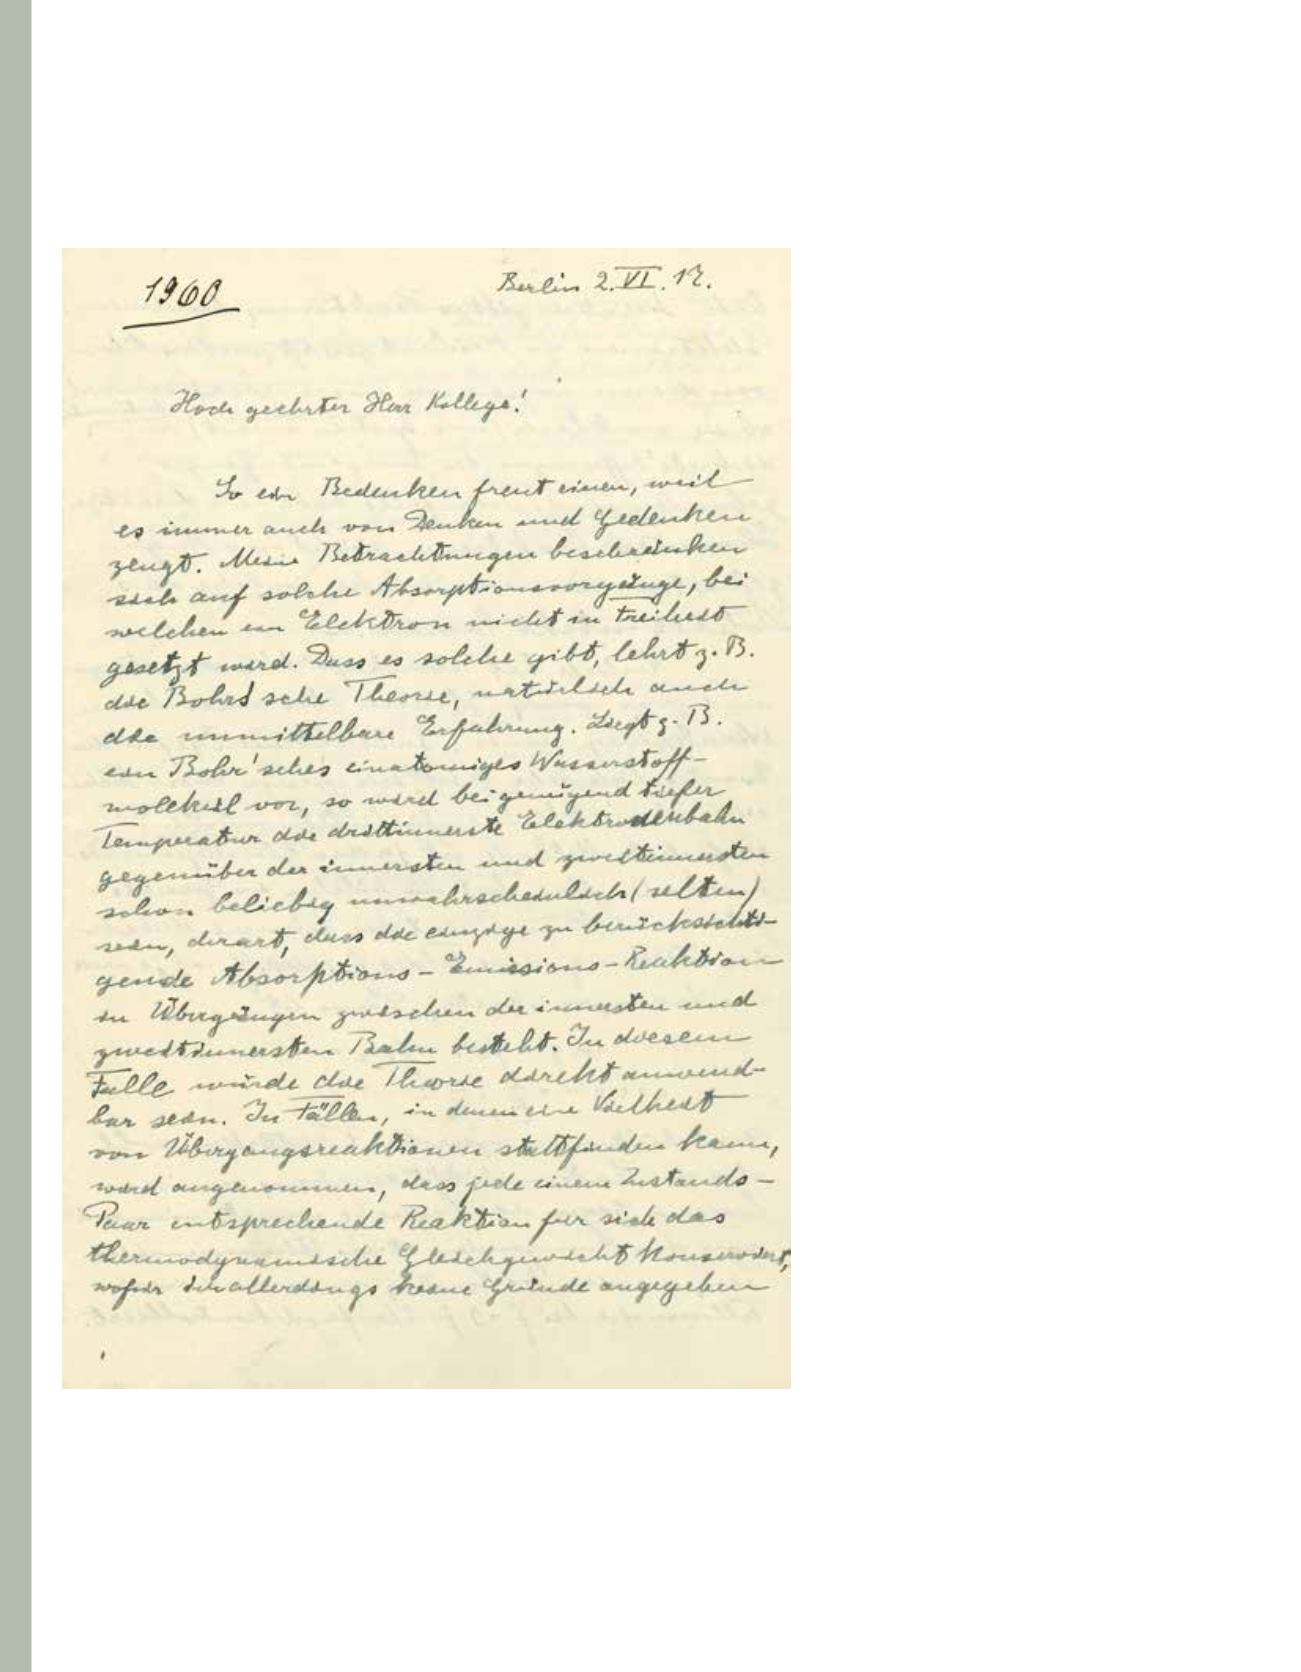 1960
Berlin 2. VI. 17.
Hoch geehrter Herr Kollege!
So ein Bedenken freut einen, weil
es immer auch von Denken und Gedenken
zeugt. Meine Betrachtungen beschränken
sich auf solche Absorptionsvorgänge, bei
welchen ein Elektron nicht in Freiheit
gesetzt wird. Dass es solche gibt, lehrt z. B.
die Bohr'sche Theorie, natürlich auch
die unmittelbare Erfahrung. Liegt z. B.
ein Bohr'sches einatomiges Wasserstoff-
molekül vor, so wird bei genügend tiefer
Temperatur die drittinnerste Elektronenbahn
gegenüber der innersten und zweitinnersten
schon beliebig unwahrscheinlich (selten)
sein, derart, dass die einzige zu berücksichti-
gende Absorptions-Emissions-Reaktion
in Übergängen zwischen der innersten und
zweitinnersten Bahn besteht. In diesem
Falle würde die Theorie direkt anwend-
bar sein. In Fällen, in denen eine Vielheit
von Übergangsreaktionen stattfinden kann,
wird angenommen, dass jede einem Zustands-
Paar entsprechende Reaktion für sich das
thermodynamische Gleichgewicht konserviert,
wofür ich allerdings keine Gründe angegeben